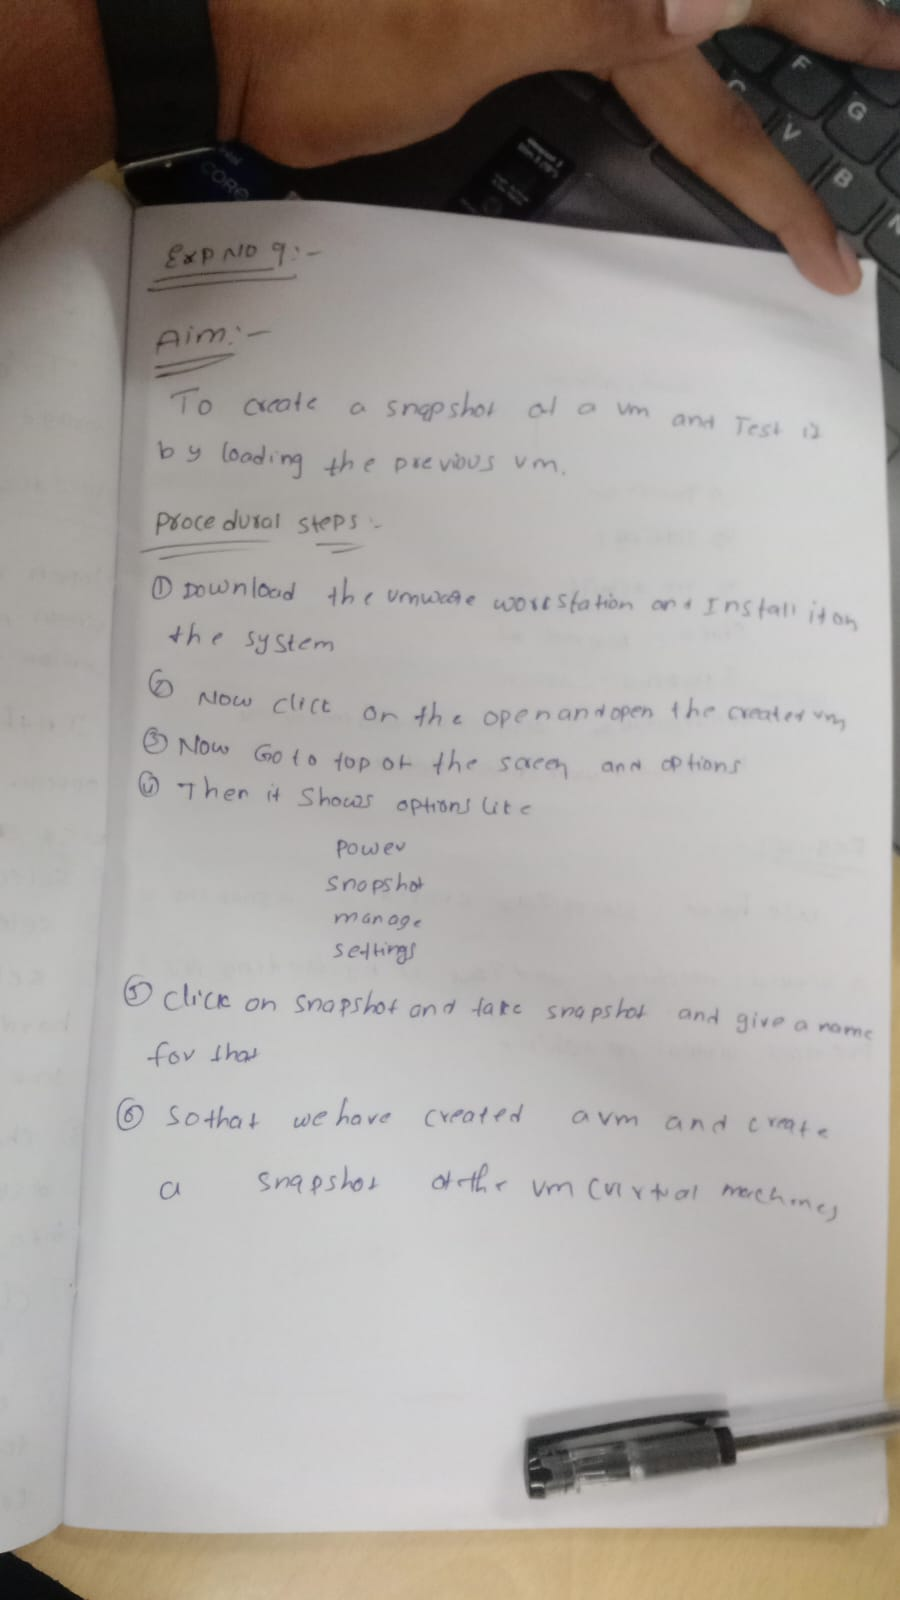 Exp NO 9:-
Aim:-
To create a snapshot of a vm and Test it
by loading the previous vm.
Procedural steps:-
① Download the vmware workstation and Install it on
the system
② Now click on the open and open the created vm
③ Now Go to top of the screen and options
④ Then it shows options like
power
snapshot
manage
settings
⑤ Click on snapshot and take snapshot and give a name
for that
⑥ So that we have created a vm and create
a snapshot of the vm (virtual machines
CORE
F
G
C
V
B
N